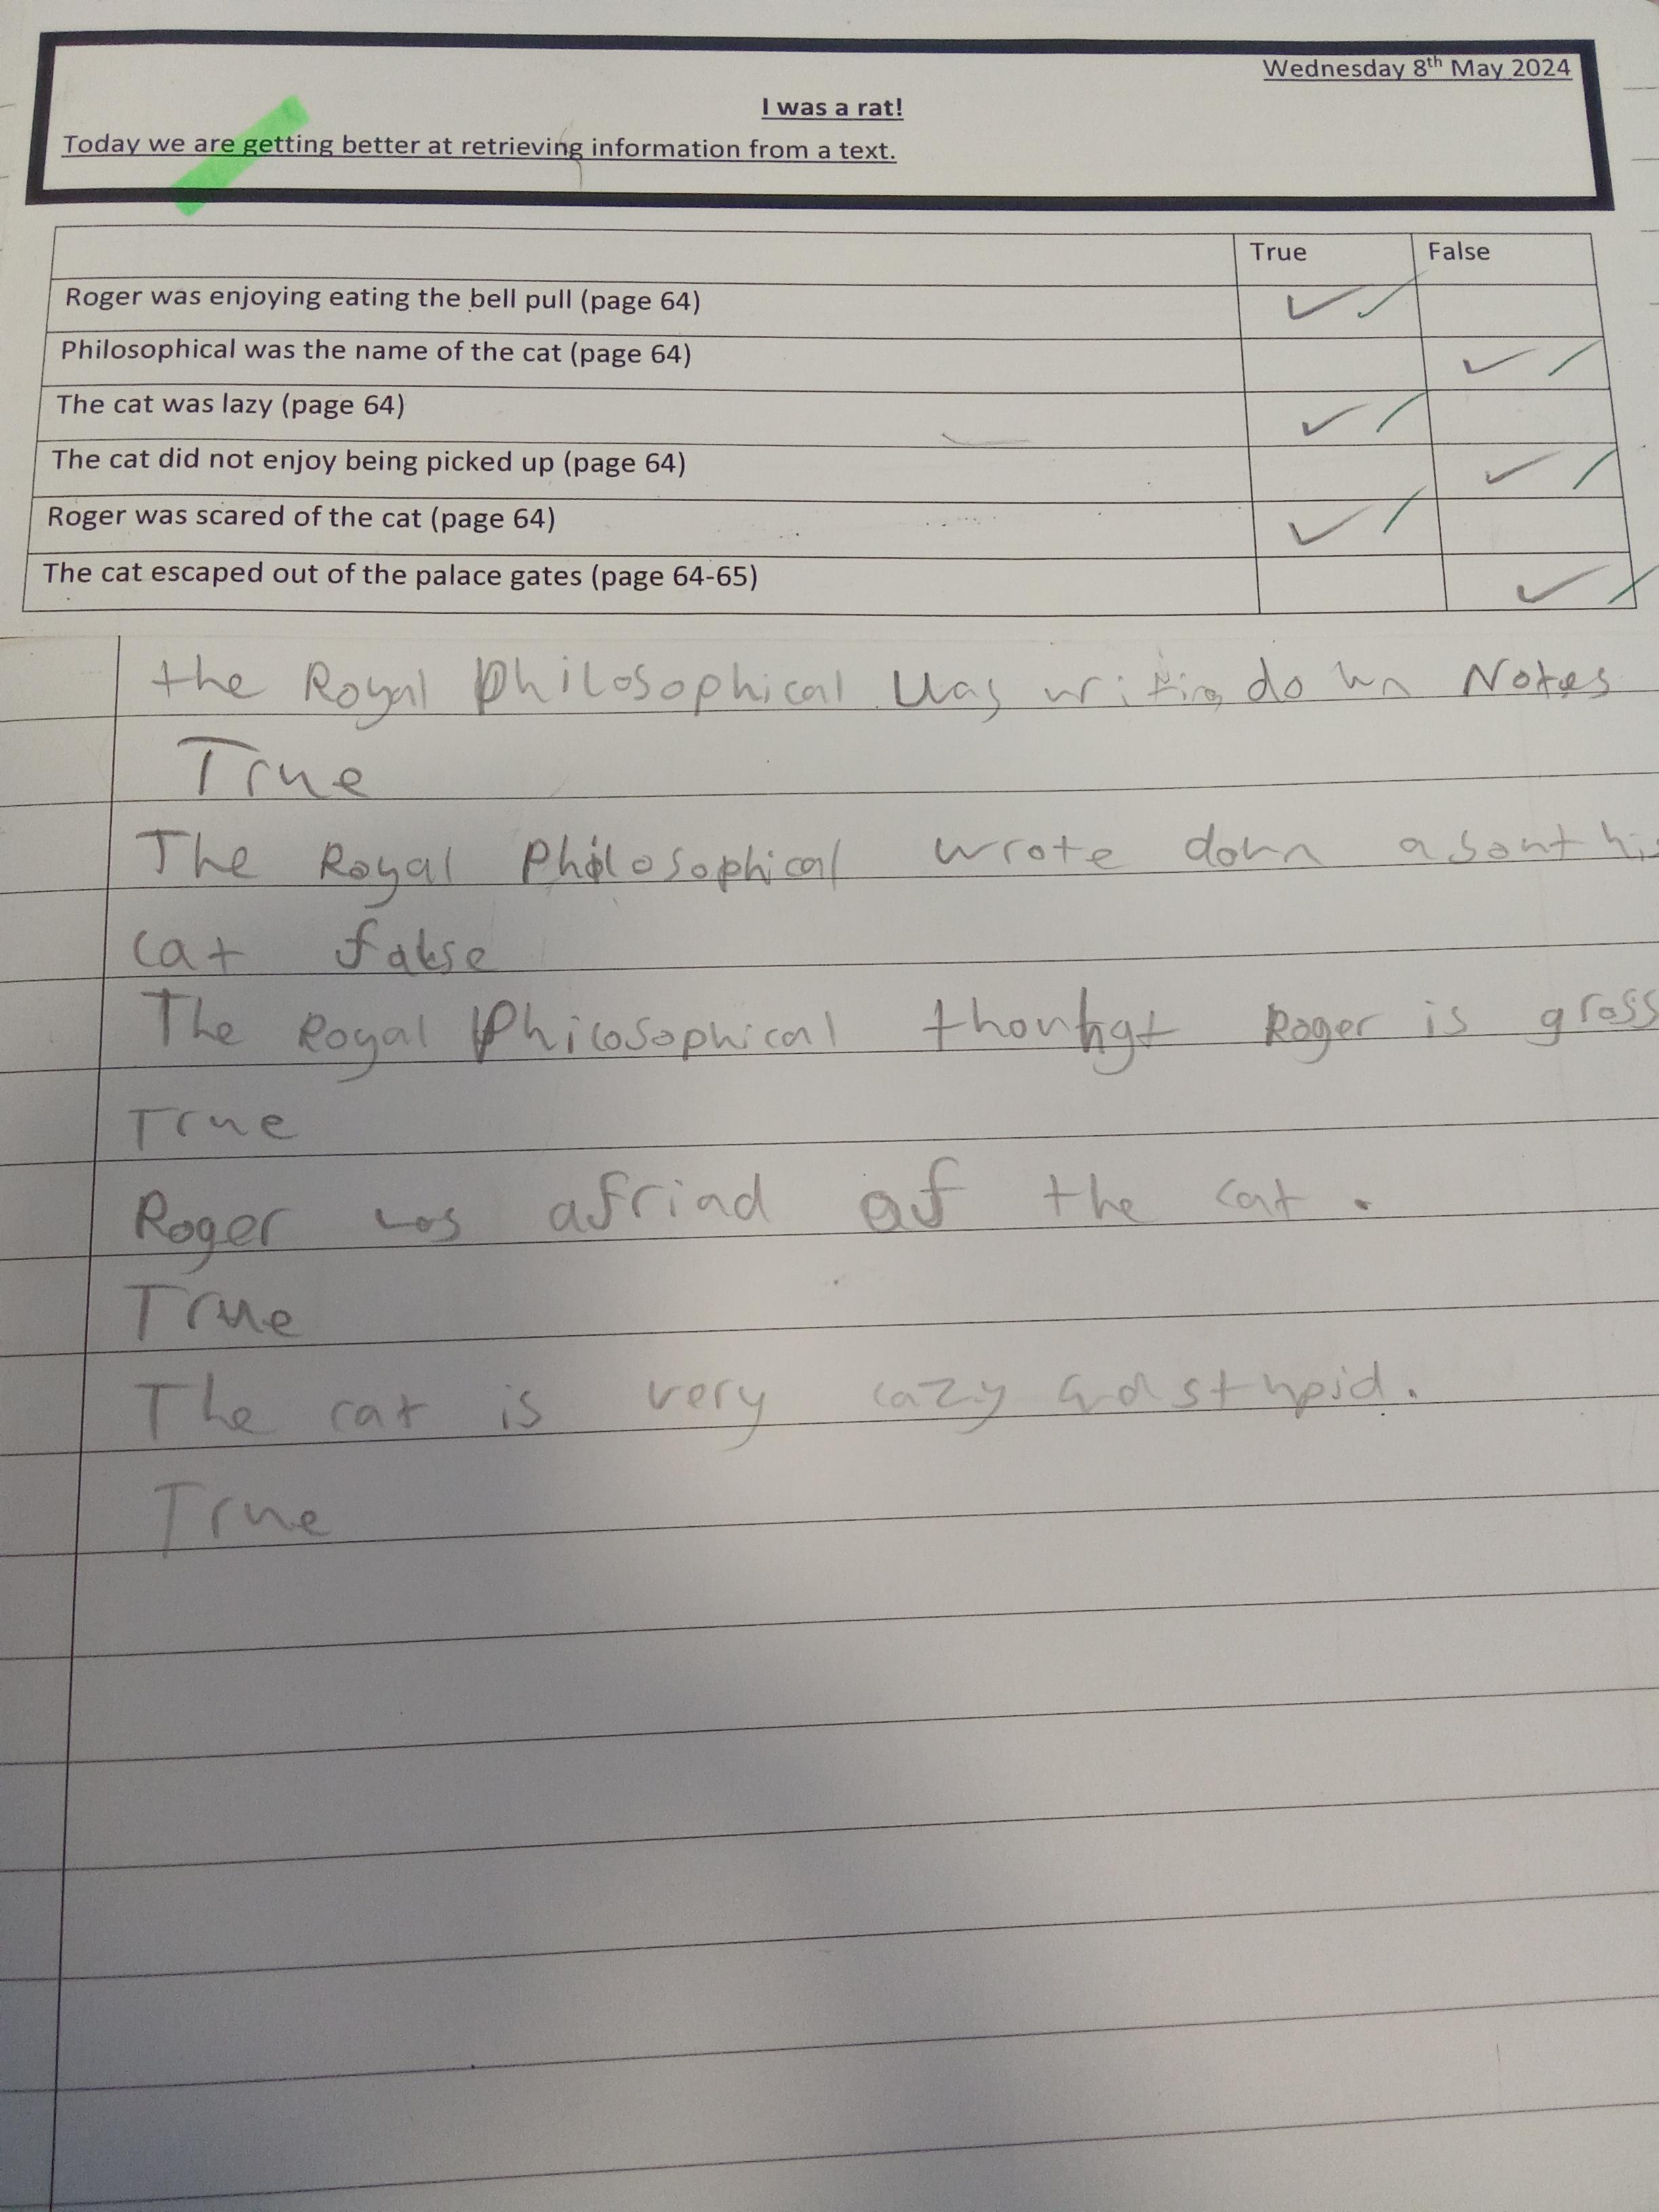 Wednesday 8th May 2024
I was a rat!
Today we are getting better at retrieving information from a text.
True False
Roger was enjoying eating the bell pull (page 64) ✓
Philosophical was the name of the cat (page 64) ✓
The cat was lazy (page 64) ✓
The cat did not enjoy being picked up (page 64) ✓
Roger was scared of the cat (page 64) ✓
The cat escaped out of the palace gates (page 64-65) ✓
the Royal Philosophical was writing down Notes
True
The Royal Philosophical wrote down about his
cat false
The Royal Philosophical thouhgt Roger is gross
True
Roger was afriad of the cat.
True
The cat is very lazy and stupid.
True